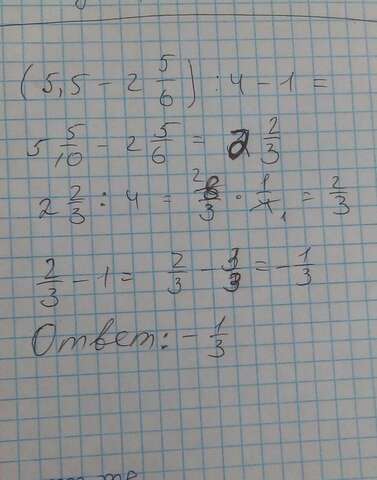 (5,5 - 2 5/6) : 4 - 1 =
5 5/10 - 2 5/6 = 2 2/3
2 2/3 : 4 = 8/3 · 1/4 = 2/3
2/3 - 1 = 2/3 - 3/3 = - 1/3
Ответ: - 1/3